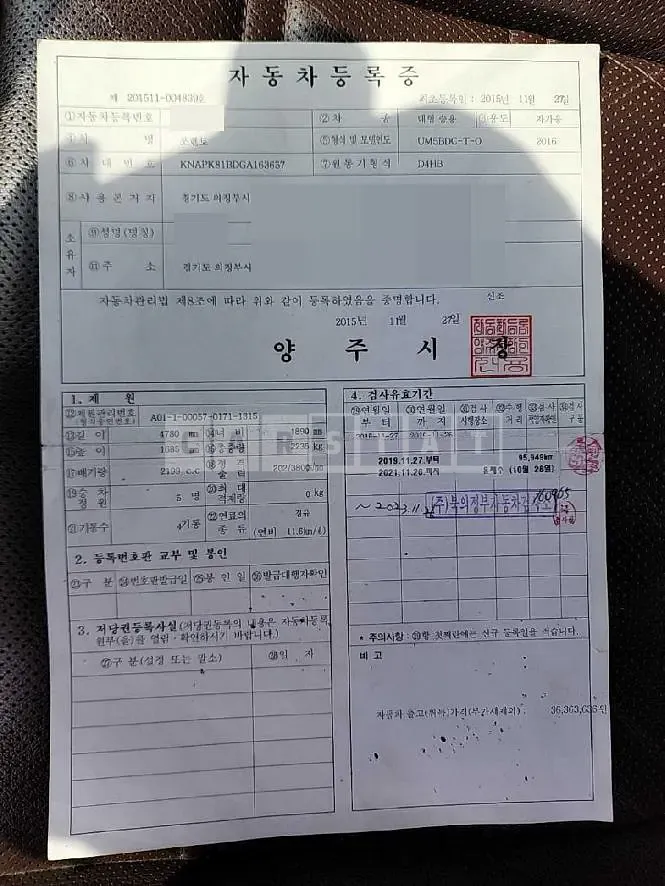 자동차등록증
제 201511-004839호 최초등록일 : 2015년 11월 27일
①자동차등록번호 ②차 종 대형 승용 ③용도 자가용
④차 명 쏘렌토 ⑤형식 및 모델연도 UM5BDC-T-O 2016
⑥차 대 번 호 KNAPK81BDGA163657 ⑦원동기형식 D4HB
⑧사용본거지 경기도 의정부시
소유자 ⑨성명(명칭)
⑪주 소 경기도 의정부시
자동차관리법 제8조에 따라 위와 같이 등록하였음을 증명합니다. 신조
2015년 11월 27일
양 주 시 장
1. 제 원
⑫제원관리번호 A01-1-00057-0171-1315
(형식승인번호)
⑬길이 4780 mm ⑭너 비 1890 mm
⑮높이 1685 mm ⑯총중량 2235 kg
⑰배기량 2199 c.c ⑱정격출력 202/3800
⑲승차정원 5 명 ⑳최대적재량 0 kg
㉑기통수 4기통 ㉒연료의종류 경유
(연비 11.6km/ℓ)
2. 등록번호판 교부 및 봉인
㉓구 분 ㉔번호판발급일 ㉕봉 인 일 ㉖발급대행자확인
3. 저당권등록사실(저당권등록의 내용은 자동차등록
원부(을)를 열람·확인하시기 바랍니다.)
㉗구 분(설정 또는 말소) ㉘일 자
4. 검사유효기간
㉙연월일부터 ㉚연월일까지 ㉛검사시행장소 ㉜주행거리 ㉝검사 ㉞검사구분
2015-11-27 2019-11-26
2019.11.27.부터 95,949km
2021.11.26.까지 (10월 28일)
~ 2023.11
(주)북의정부자동차검사소
* 주의사항 : ㉙항 첫째란에는 신규 등록일을 적습니다.
비 고
자동차 출고(취득)가격(부가세제외) : 36,363,636원